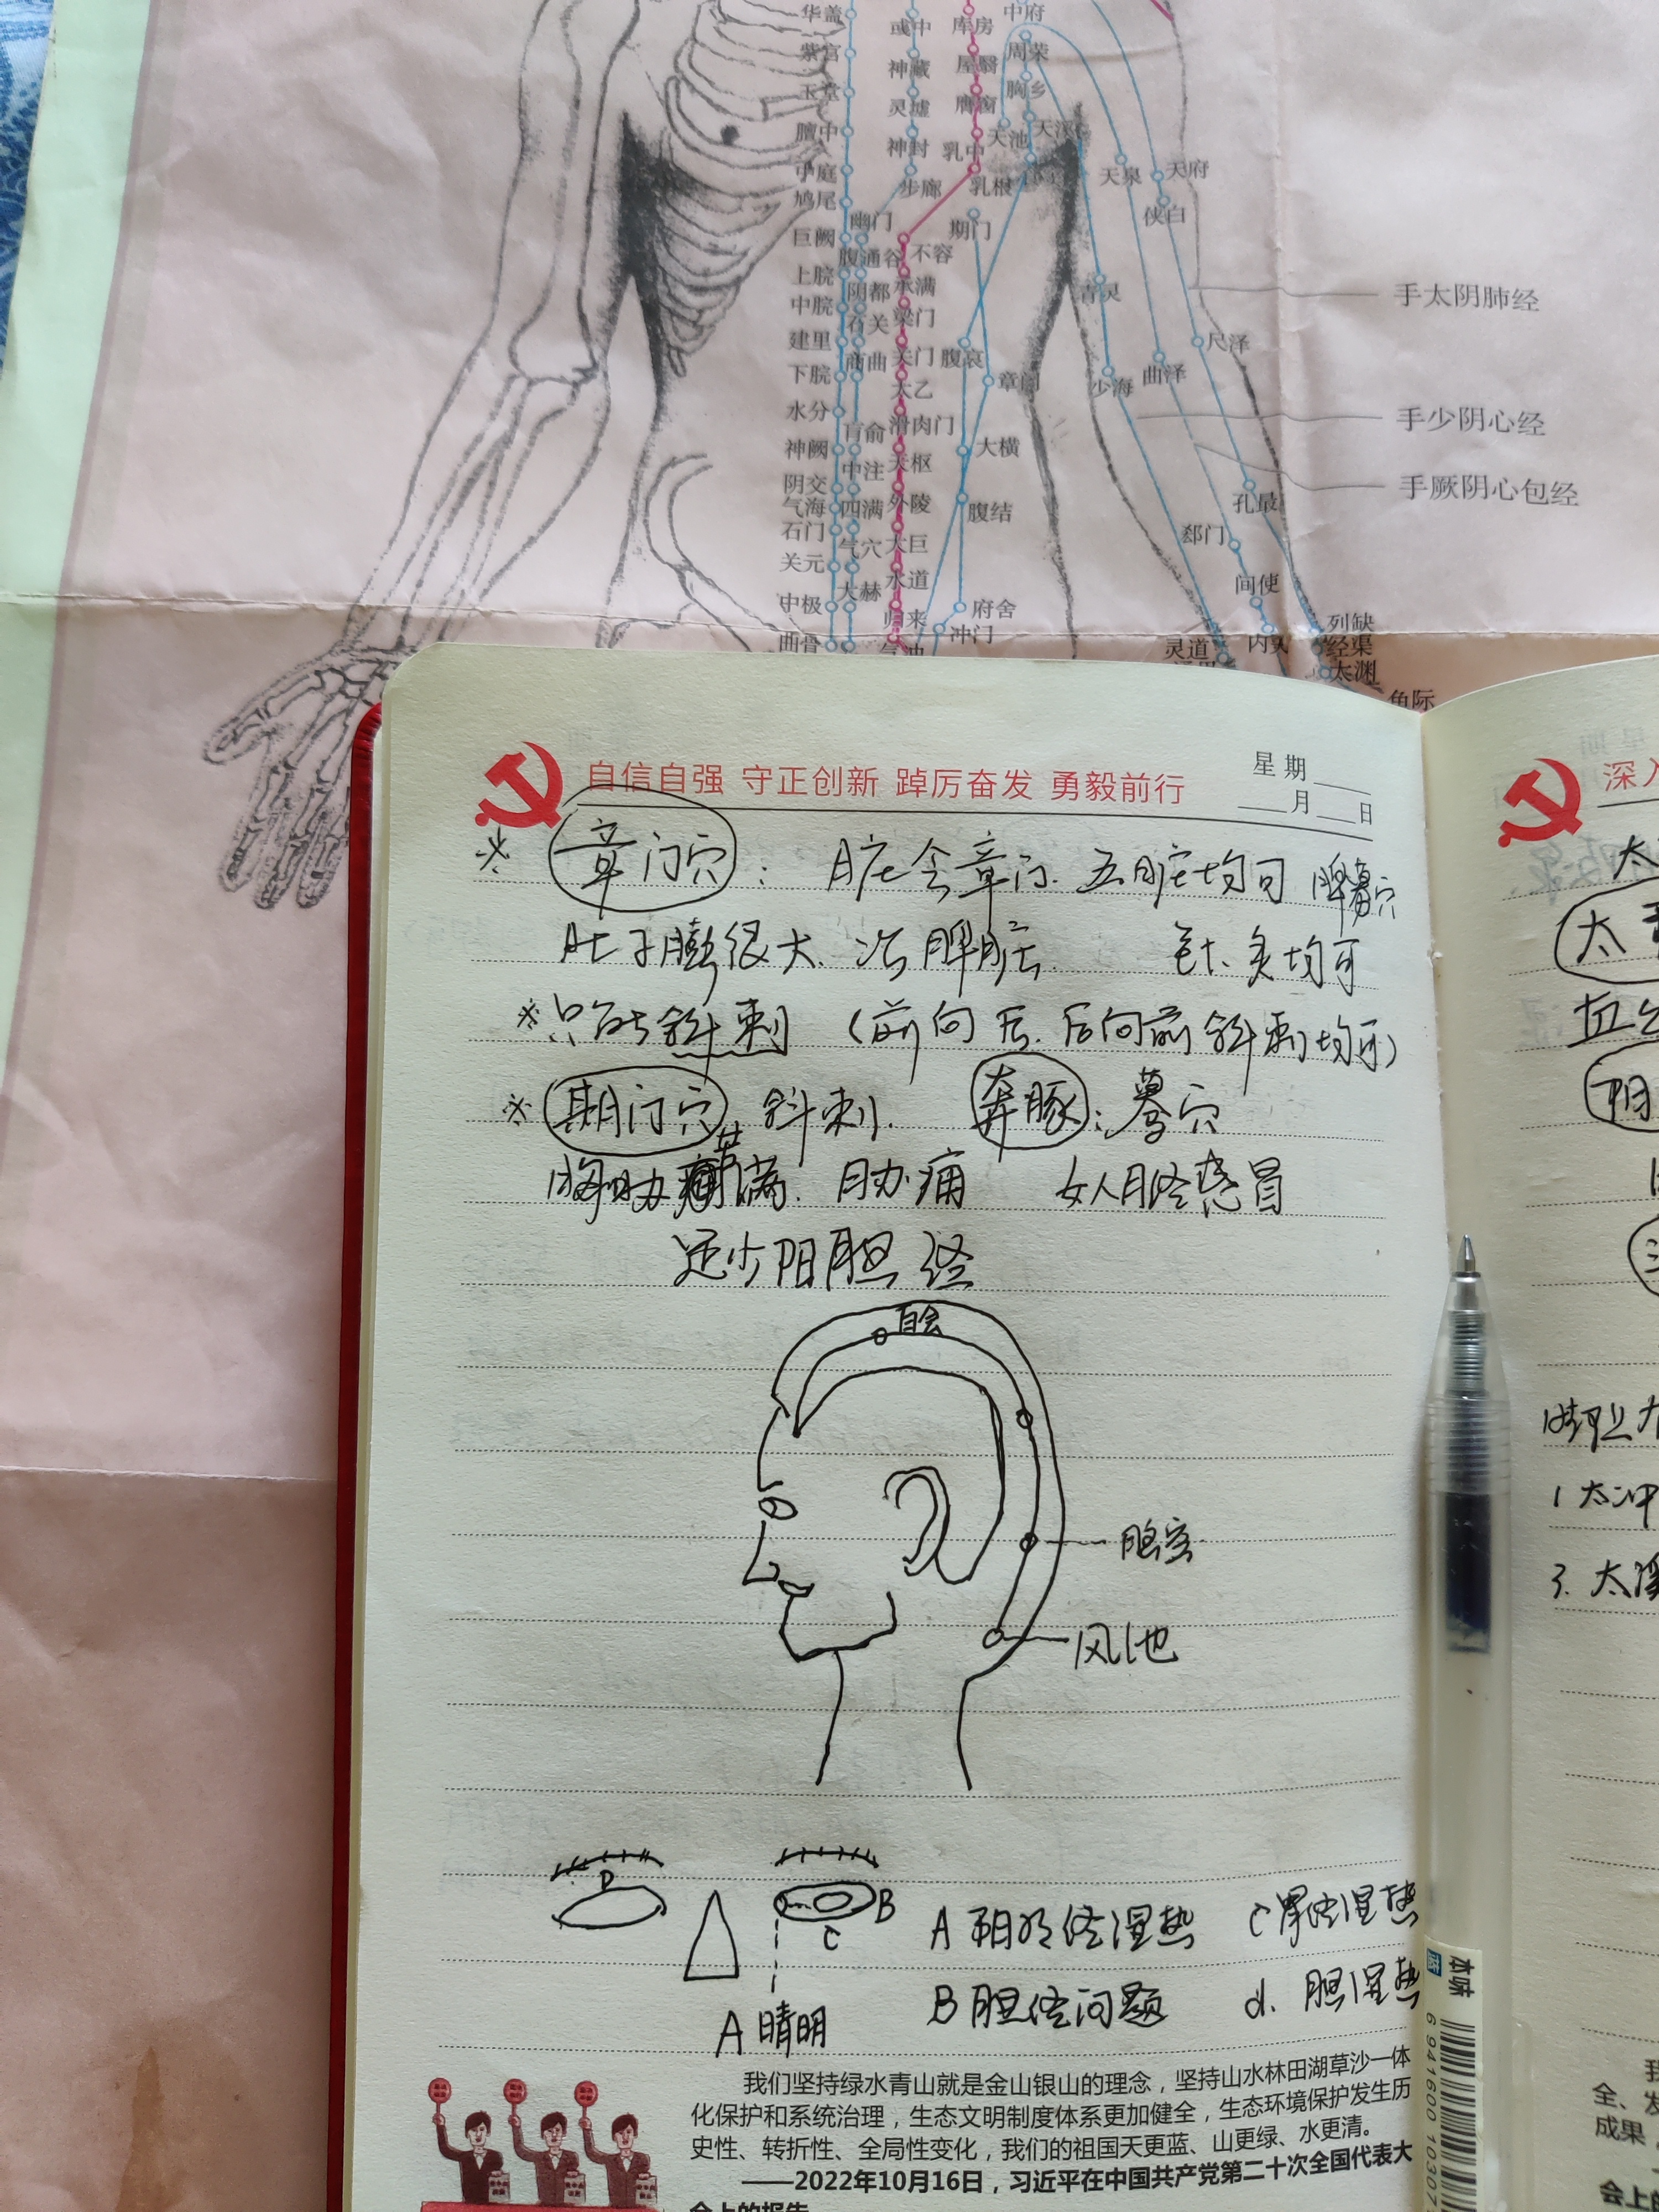 华盖 或中 库房 中府
紫宫 神藏 屋翳 周荣
玉堂 灵墟 膺窗 胸乡
膻中 神封 乳中 天池 天溪
中庭 步廊 乳根 天泉 天府
鸠尾 幽门 期门 侠白
巨阙 腹通谷 不容
上脘 阴都 承满 青灵 手太阴肺经
中脘 石关 梁门
建里 商曲 关门 腹哀 尺泽
下脘 太乙 章门 少海 曲泽
水分 滑肉门 手少阴心经
神阙 肓俞 天枢 大横
阴交 中注 手厥阴心包经
气海 四满 外陵 腹结 孔最
石门 气穴 大巨 郄门
关元 大赫 水道 间使
中极 归来 府舍 列缺
曲骨 冲门 灵道 经渠
太渊
鱼际
自信自强 守正创新 踔厉奋发 勇毅前行
星期
月 日
章门穴: 脏会章门. 五脏均可 脾募穴
肚子膨很大. 治脾脏. 针.灸均可
※只能斜刺 (前向后.后向前斜刺均可)
※期门穴 斜刺. 奔豚: 募穴
胸胁苦满. 肋痛 女人月经感冒
足少阳胆经
百会
脑空
风池
D
B
C
A 睛明
A 阳明经湿热 C 胃经湿热
B 胆经问题 d. 胆湿热
我们坚持绿水青山就是金山银山的理念,坚持山水林田湖草沙一体
化保护和系统治理,生态文明制度体系更加健全,生态环境保护发生历
史性、转折性、全局性变化,我们的祖国天更蓝、山更绿、水更清。
——2022年10月16日,习近平在中国共产党第二十次全国代表大
会上的报告
深入
1 太冲
3. 太溪
本味
6 941600 10307
全、发
成果
会上的